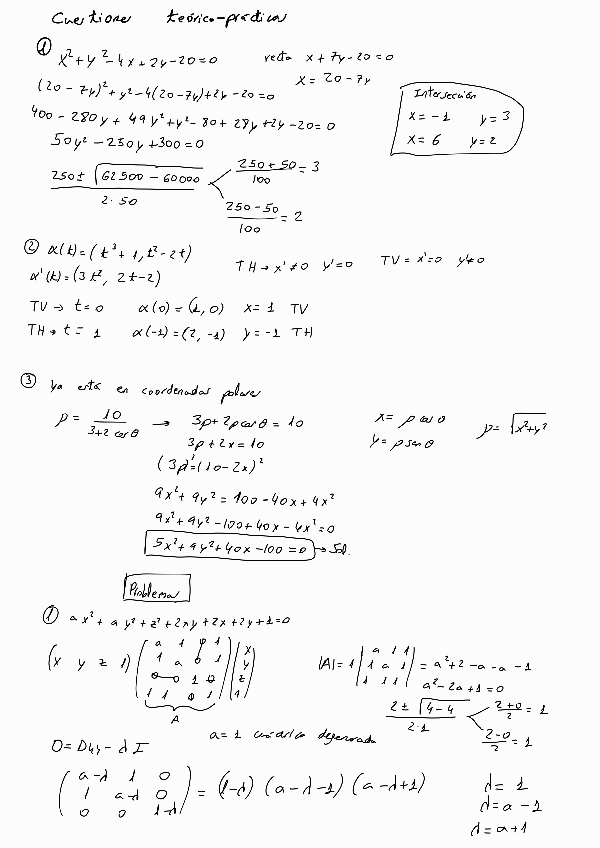 Cuestiones teórico-prácticas
① x²+y²-4x+2y-20=0 recta x+7y-20=0
x = 20-7y
(20-7y)²+y²-4(20-7y)+2y-20=0
400-280y+49y²+y²-80+28y+2y-20=0
50y²-250y+300=0
Intersección
x=-1 y=3
x=6 y=2
250±√62500-60000 / 2·50
250+50/100=3
250-50/100=2
② α(t)=(t³+1, t²-2t)
α'(t)=(3t², 2t-2)
TH→x'≠0 y'=0 TV=x'=0 y'≠0
TV→ t=0 α(0)=(1,0) x=1 TV
TH→ t=1 α(-1)=(2,-1) y=-1 TH
③ Ya está en coordenadas polares
ρ = 10/3+2cosθ → 3ρ+2ρcosθ=10
x=ρcosθ
y=ρsenθ
ρ=√x²+y²
3ρ+2x=10
(3ρ)²=(10-2x)²
9x²+9y²=100-40x+4x²
9x²+9y²-100+40x-4x²=0
5x²+9y²+40x-100=0 → Sol.
Problemas
① ax²+ay²+z²+2xy+2x+2y+1=0
(x y z 1) (a 1 0 1) (x)
(1 a 0 1) (y)
(0 0 1 0) (z)
(1 1 0 1) (1)
A
|A|=1 |a 1 1|
|1 a 1| = a²+2-a-a-1
|1 1 1|
a²-2a+1=0
2±√4-4 / 2·1
2+0/2=1
2-0/2=1
a=1 cuádrica degenerada
0=D44-λI
(a-λ 1 0)
(1 a-λ 0) = (1-λ)(a-λ-1)(a-λ+1)
(0 0 1-λ)
λ=1
λ=a-1
λ=a+1